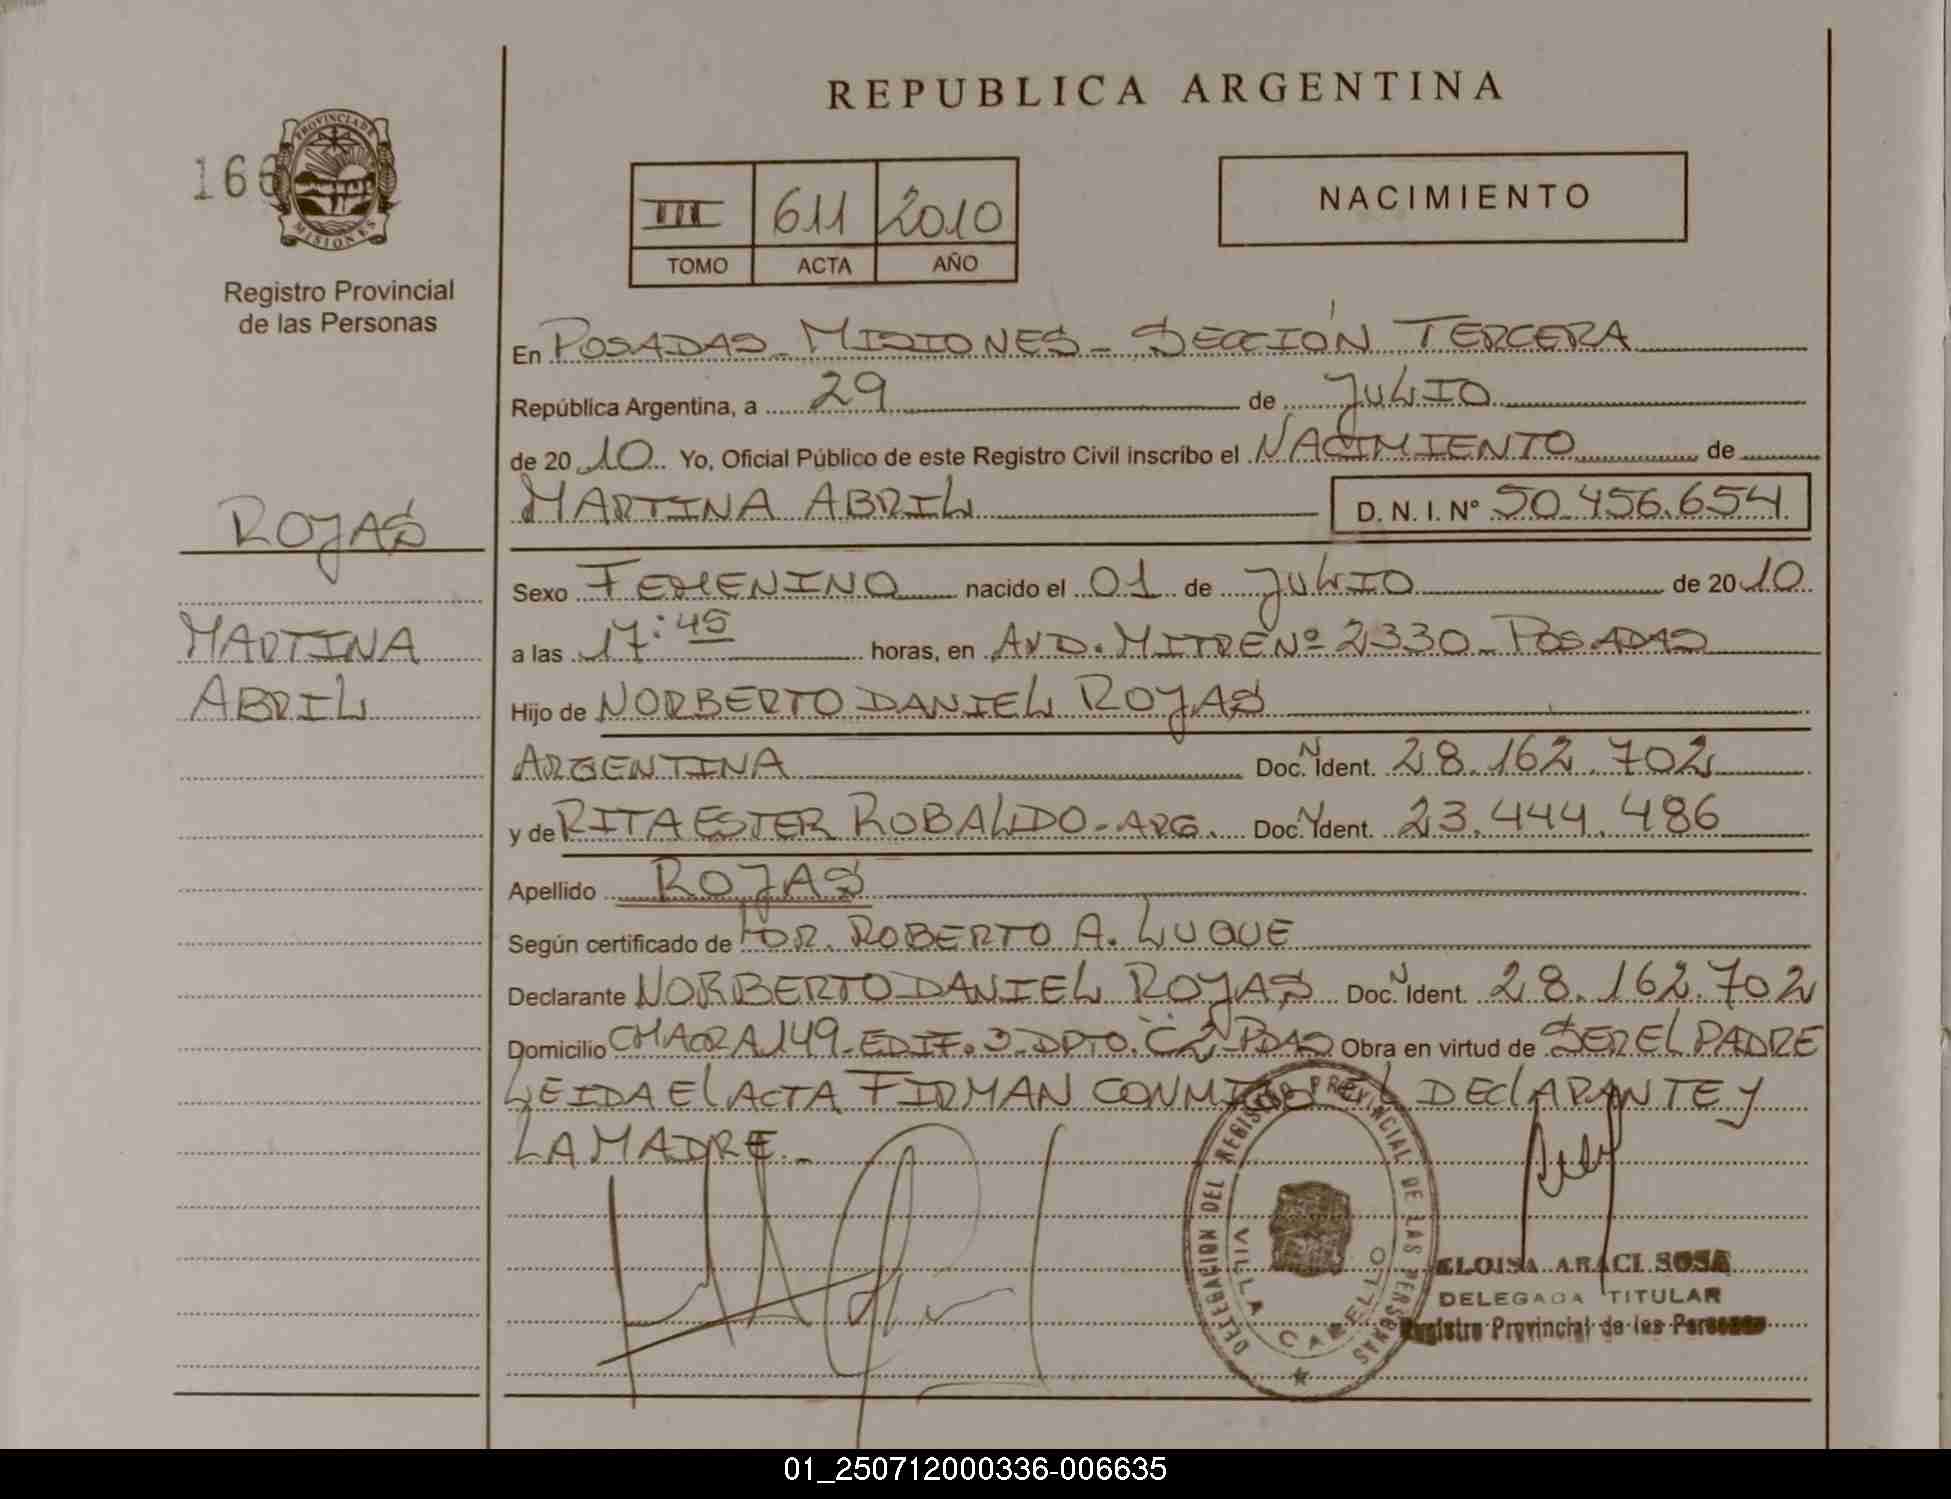 REPUBLICA ARGENTINA
166
PROVINCIA DE
MISIONES
Registro Provincial
de las Personas
III 611 2010
TOMO ACTA AÑO
NACIMIENTO
En POSADAS - MISIONES - SECCIÓN TERCERA
República Argentina, a 29 de JULIO
de 2010 Yo, Oficial Público de este Registro Civil inscribo el NACIMIENTO de
MARTINA ABRIL D. N. I. Nº 50.456.654
ROJAS
MARTINA
ABRIL
Sexo FEMENINO nacido el 01 de JULIO de 2010
a las 17:45 horas, en AVD. MITRE Nº 2330 - POSADAS
Hijo de NORBERTO DANIEL ROJAS
ARGENTINA Doc. N Ident. 28.162.702
y de RITA ESTER ROBALDO - ARG. Doc. N Ident. 23.444.486
Apellido ROJAS
Según certificado de DR. ROBERTO A. LUQUE
Declarante NORBERTO DANIEL ROJAS Doc. N Ident. 28.162.702
Domicilio CHACRA 149 - EDIF. 3 - DPTO. "C2" PDAS Obra en virtud de SER EL PADRE
LEIDA El ACTA FIRMAN CONMIGO EL DEClARANTE Y
LA MADRE.-
DELEGACION DEL REGISTRO PROVINCIAL DE LAS PERSONAS
VILLA CABELLO
ELOISA ARACI SOSA
DELEGADA TITULAR
Registro Provincial de las Personas
01_250712000336-006635